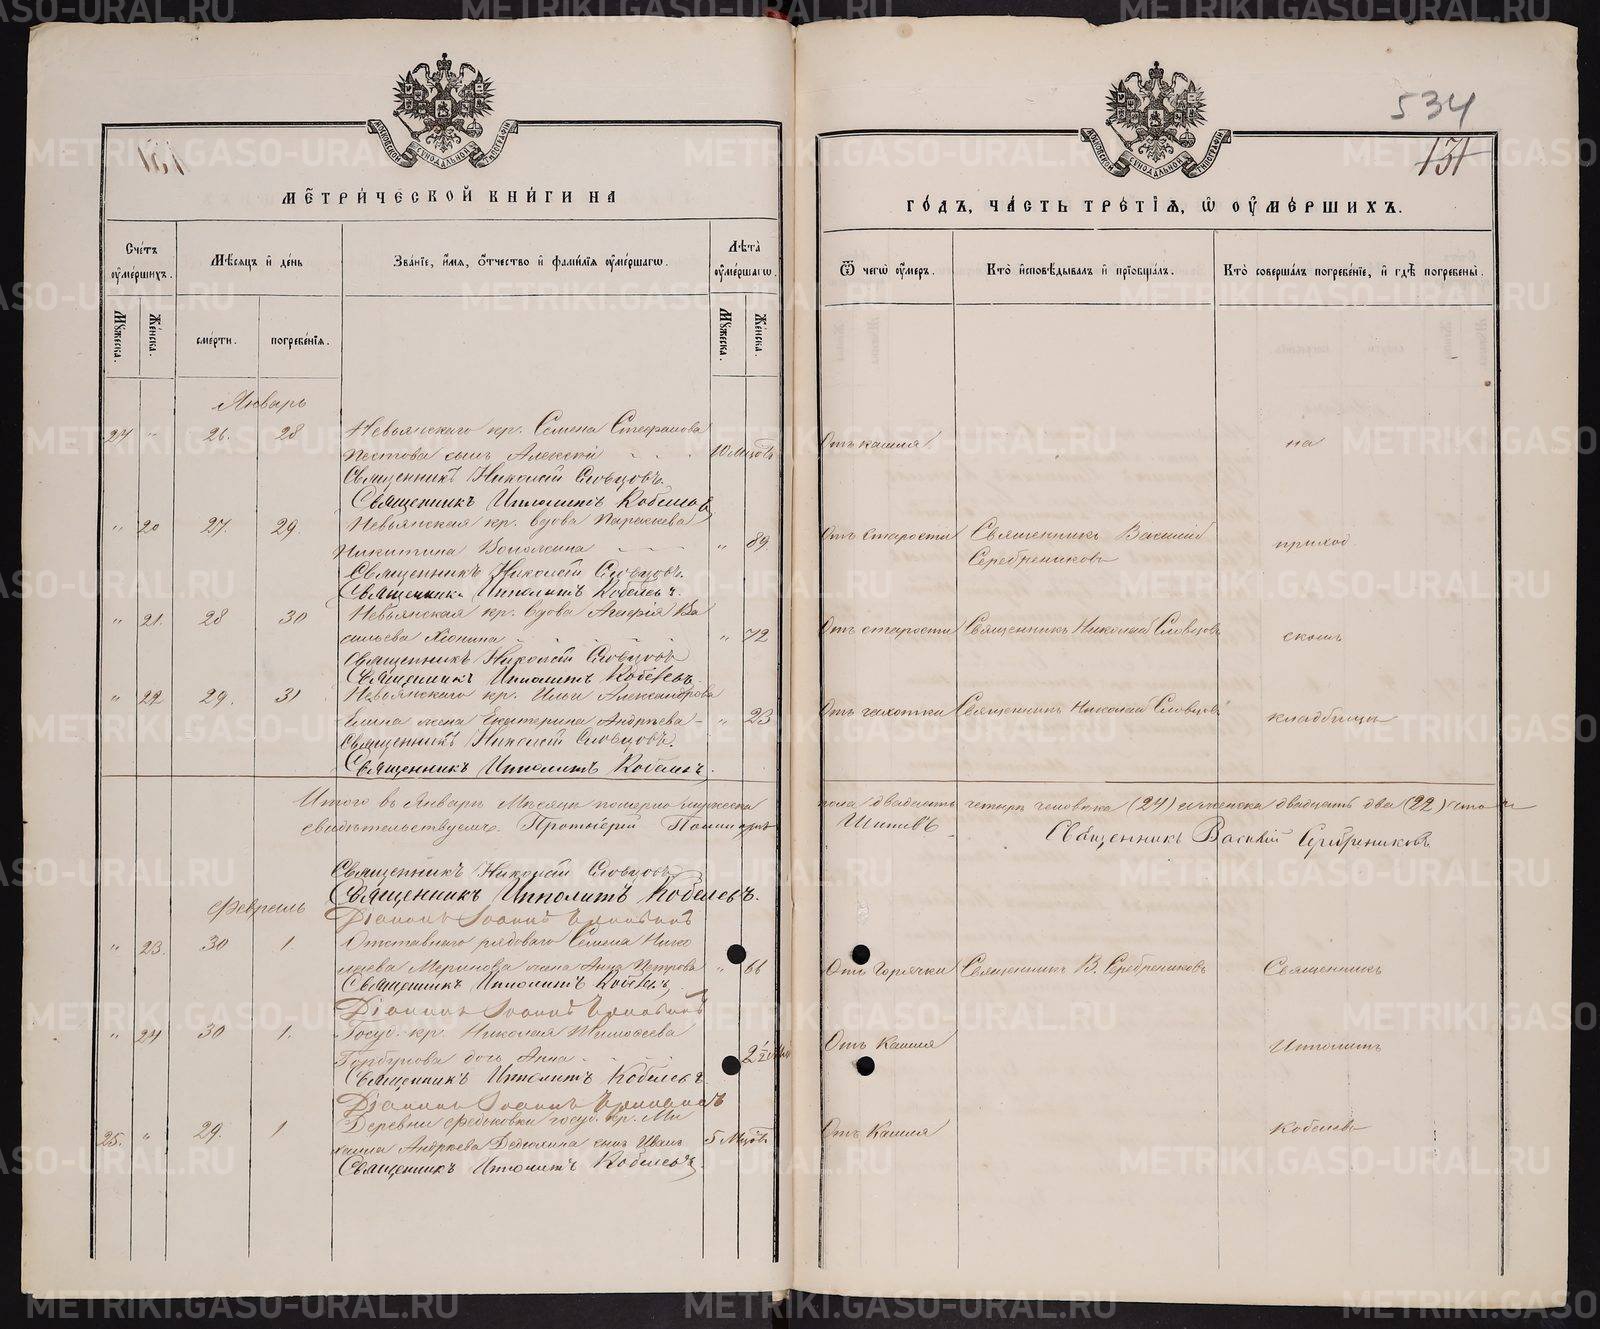 534
131
МЕТРИЧЕСКОЙ КНИГИ НА
ГОДЪ, ЧАСТЬ ТРЕТІЯ, Ѡ ОУМЕРШИХЪ.
Счетъ оумершихъ.
Мѣсяцъ и день
Званіе, имя, отчество и фамилія оумершагѡ.
Лѣта оумершагѡ.
Ѿ чегѡ оумеръ.
Кто исповѣдывалъ и пріобщалъ.
Кто совершалъ погребеніе, и гдѣ погребены.
Мужеска.
Женска.
смерти.
погребенія.
Мужеска.
Женска.
Январь
24 " 26. 28 Невьянскаго кр. Семена Стефанова
Пестова сынъ Алексѣй 10 Мцовъ Отъ кашля на
Священникъ Николай Словцовъ.
Священникъ Ипполитъ Кобелевъ
" 20 27. 29. Невьянская кр. вдова Параскева
Никитина " 89 Отъ старости Священникъ Василій
Серебрениковъ приход
Священникъ Николай Словцовъ.
Священникъ Ипполитъ Кобелевъ.
" 21. 28 30 Невьянская кр. вдова Агафія Ва
сильева " 72 Отъ старости Священникъ Николай Словцовъ скомъ
Священникъ Николай Словцовъ
Священникъ Ипполитъ Кобелевъ.
" 22 29. 31 Невьянскаго кр. Ильи Александрова
жена Екатерина Андреева " 23 Отъ чахотки Священникъ Николай Словцовъ кладбищѣ
Священникъ Николай Словцовъ.
Священникъ Ипполитъ Кобелевъ.
Итого въ Январѣ Мѣсяцѣ померло мужеска пола двадцать четыре человѣка (24) и женска двадцать два (22) что и
свидѣтельствуемъ. Протоіерей
Священникъ Василій Серебрениковъ.
Священникъ Николай Словцовъ
Священникъ Ипполитъ Кобелевъ.
Февраль
Діаконъ Іоаннъ
" 23. 30 1. Отставнаго рядоваго Семена Нико
лаева Меринова жена Анна Петрова " 66 Отъ Горячки Священникъ В. Серебрениковъ Священникъ
Священникъ Ипполитъ Кобелевъ
Діаконъ Іоаннъ
" 24 30 1. Госуд. кр. Николая Тимофеева
Горбунова дочь Анна 2 1/2 Отъ Кашля Ипполитъ
Священникъ Ипполитъ Кобелевъ.
Діаконъ Іоаннъ
25. " 29. 1 Деревни Федьковки госуд. кр. Ми
хаила Андреева Дедюхина сынъ Иванъ 5 Мцовъ Отъ Кашля Кобелевъ
Священникъ Ипполитъ Кобелевъ.
METRIKI.GASO-URAL.RU